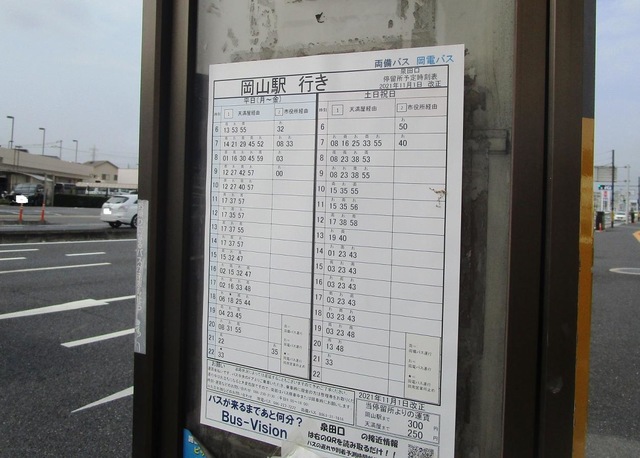 両備バス 岡電バス
岡山駅 行き
泉田口
停留所予定時刻表
2021年11月1日 改正
平日(月～金) 土日祝日
時刻 1 天満屋経由 2 市役所経由 時刻 1 天満屋経由 2 市役所経由
6 13 53 55 32 6 50
7 14 21 29 45 52 08 33 7 08 16 25 33 55 40
8 01 16 30 45 59 03 8 08 23 38 53
9 12 27 42 57 00 9 08 23 38 55
10 12 27 40 57 10 15 35 55
11 17 37 57 11 15 35 56
12 17 35 57 12 17 38 58
13 17 37 55 13 19 40
14 11 37 57 14 01 23 43
15 15 32 47 15 03 23 43
16 02 15 32 47 16 03 23 43
17 02 16 33 48 17 03 23 43
18 06 18 25 44 18 03 23 43
19 04 23 45 19 03 23 43
20 08 31 55 20 13 48
21 22 35 21 33
22 33 22
お願い
2021年11月1日改正
当停留所よりの運賃
岡山駅まで 300 円
天満屋まで 250 円
バスが来るまであと何分?
Bus-Vision
泉田口 の接近情報
は右のQRを読み取るだけ!!